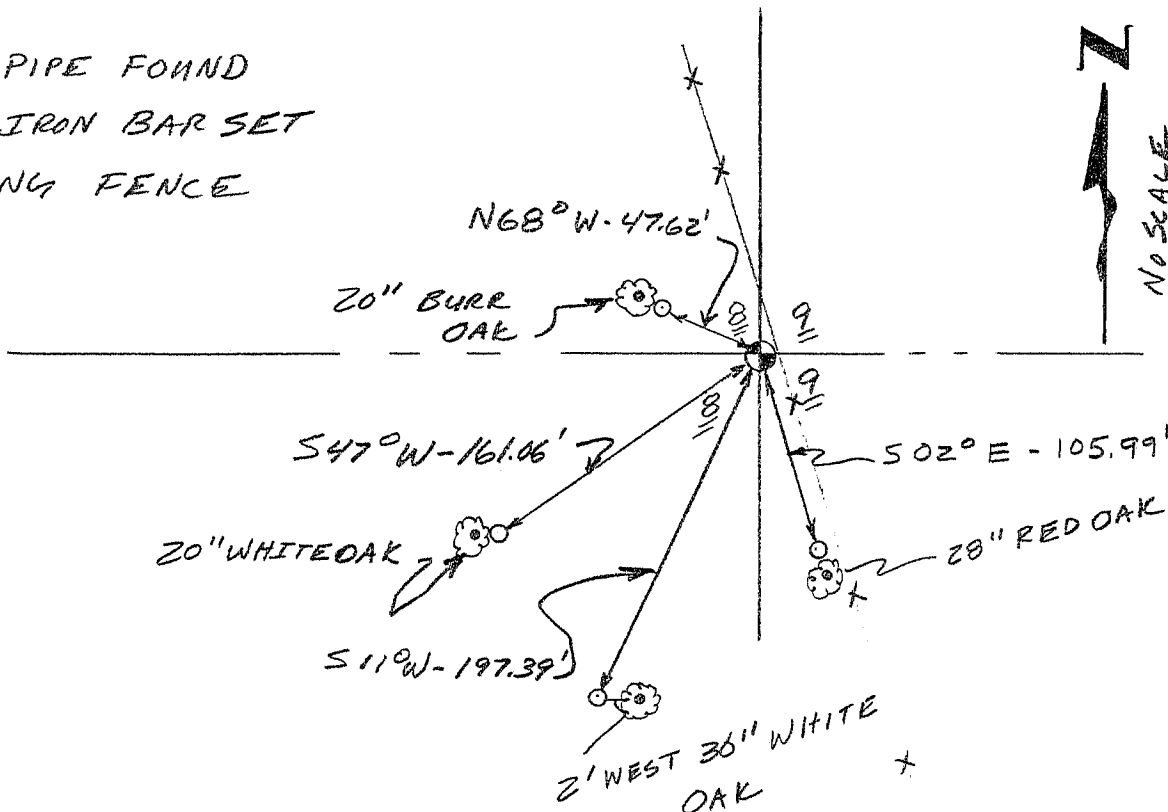 PIPE FOUND
IRON BAR SET
NG FENCE
N
NO SCALE
N68°W-47.62'
20" BURR
OAK
8
9
8
9
S47°W-161.06'
S02°E-105.99'
20" WHITE OAK
28" RED OAK
S11°W-197.39'
2' WEST 36" WHITE
OAK